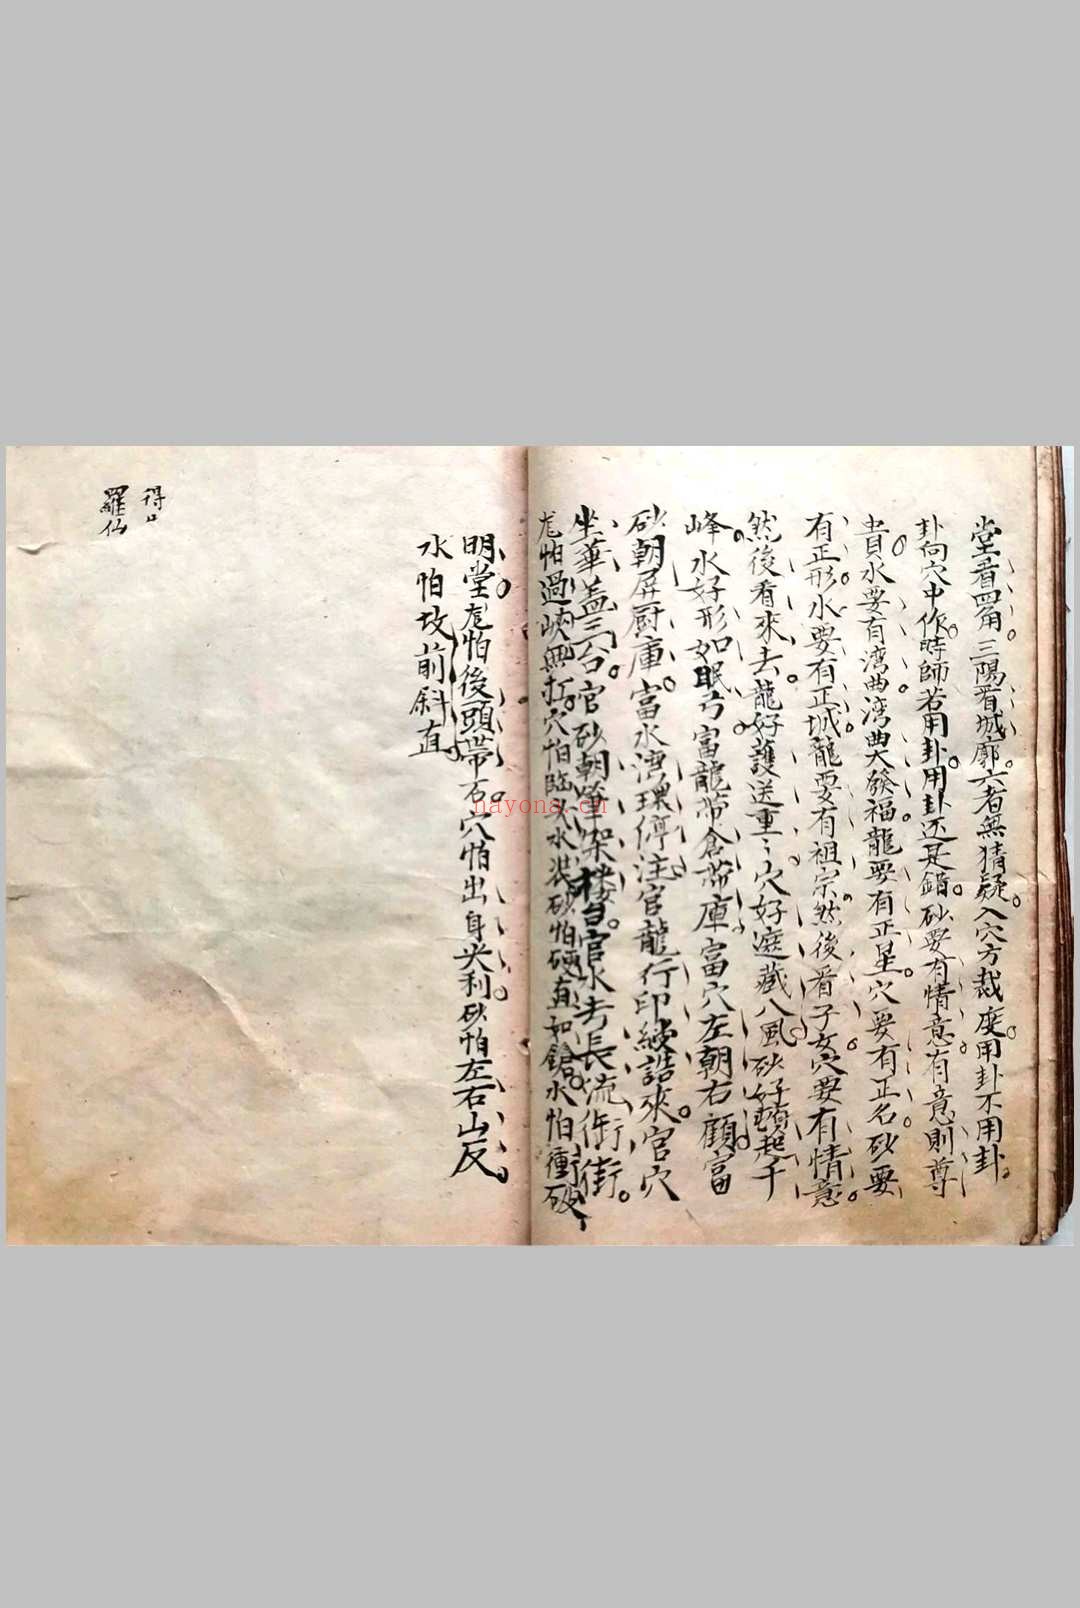 堂看四角三陽看城廓六者無猜疑入穴方裁度用卦不用卦
卦向穴中作時師若用卦用卦还是錯砂要有情意有意則尊
貴水要有湾曲湾曲大發福龍要有正星穴要有正名砂要
有正形水要有正城龍要有祖宗然後看子女穴要有情意
然後看來去龍好護送重〻穴好遮藏八風砂好頓起千
峰水好形如眠弓富龍帶倉帶庫富穴左朝右顧富
砂朝屏厨庫富水湾環停注官龍行印綬誥來官穴
坐華盖三台官砂朝峰架楼台官水去長流街街
龙怕過峽無扛穴怕臨头水裝砂怕硬直如鎗水怕衝破
明堂龙怕後頭帶石穴怕出身尖利砂怕左右山反
水怕坟前斜直
得口
羅仙
nayona.cn